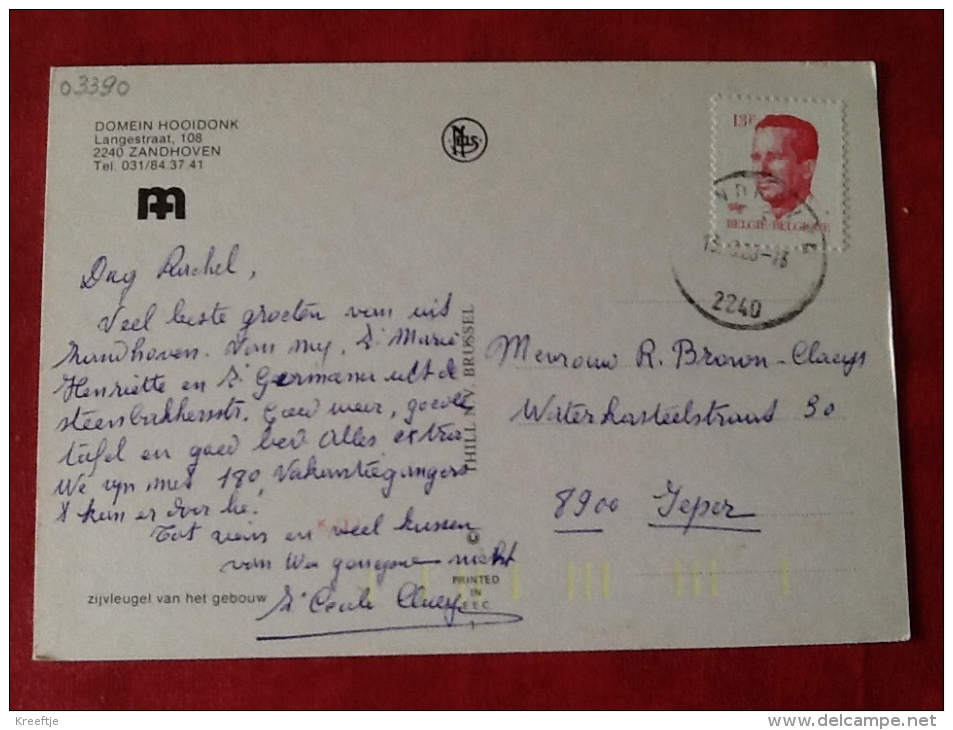 03390
DOMEIN HOOIDONK
Langestraat, 108
2240 ZANDHOVEN
Tel. 031/84.37.41
Nels
13F
BELGIË-BELGIQUE
2240
Dag Rachel,
Veel beste groeten van uit
Zandhoven. Van my, Zr Marie
Henriette en Zr Germana uit de
steenbakkersstr. Goed weer, goede
tafel en goed bed alles extra
We zyn met 180 Vakantiegangers
kan er
Tot ziens en veel kussen
van nicht
Zr Cecile Claeys
zijvleugel van het gebouw
THILL N.V. BRUSSEL
©
PRINTED
IN
E.E.C.
Mevrouw R. Brown-Claeys
Waterkasteelstraat 30
8900 Ieper
Kreeftje
www.delcampe.net